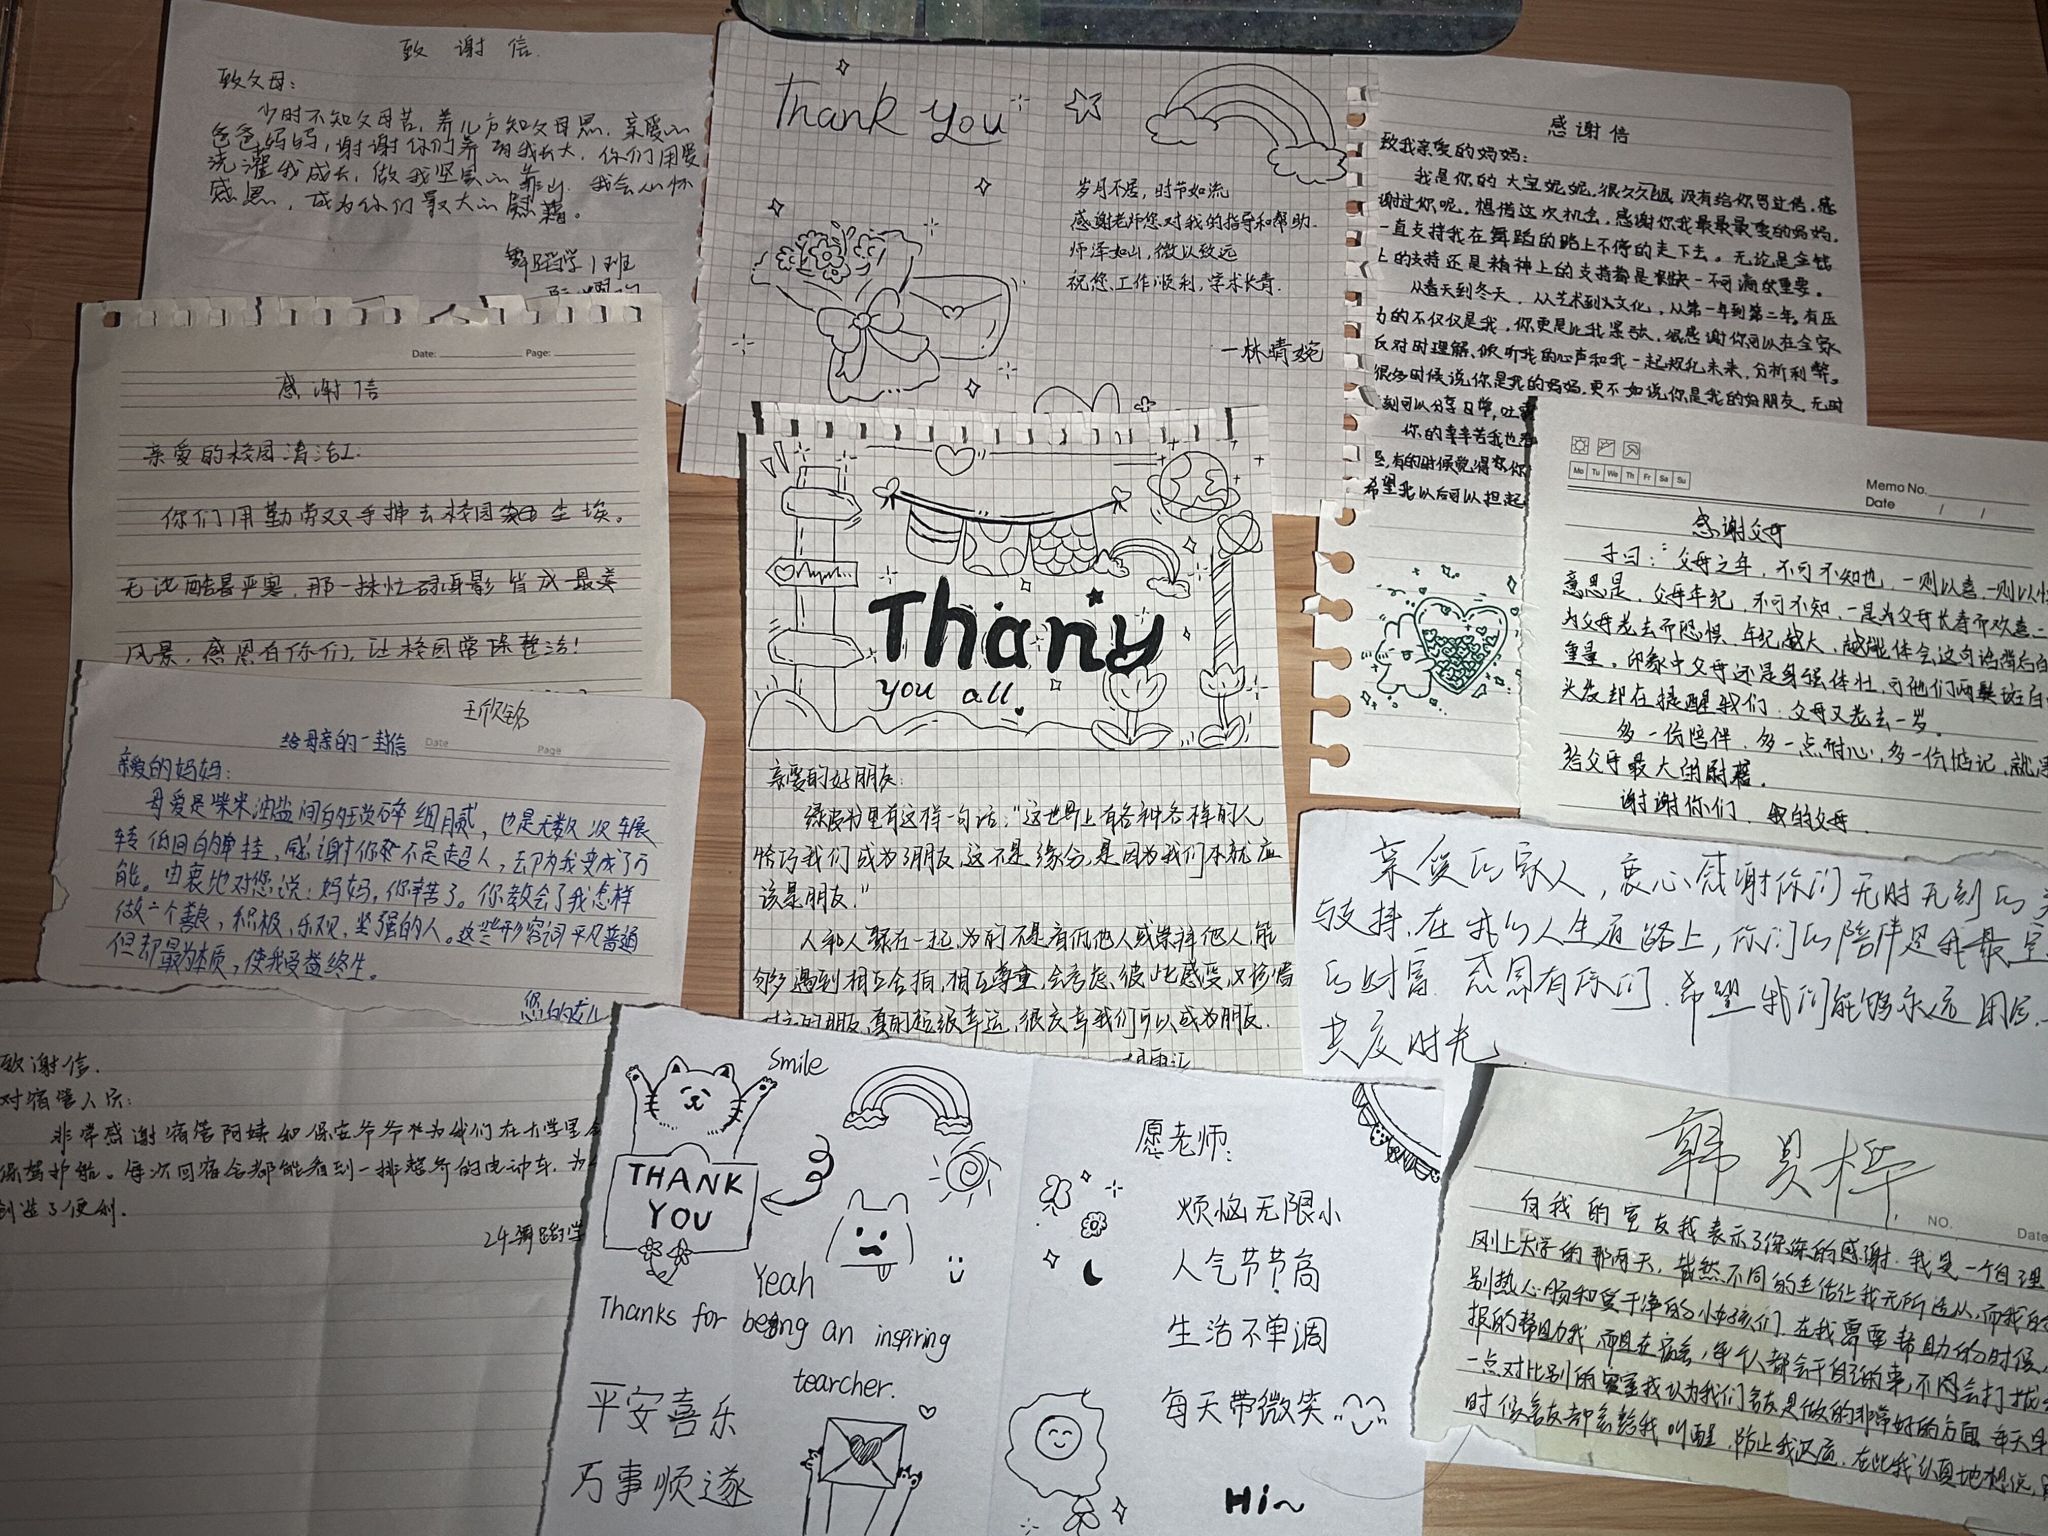 致 谢 信.
致父母:
少时不知父母苦,养儿方知父母恩.亲爱的
爸爸妈妈,谢谢你们养育我长大.你们用爱
浇灌我成长,做我坚实的靠山.我会心怀
感恩,成为你们最大的慰藉。
舞蹈学1班
Thank You
岁月不居,时节如流
感谢老师您对我的指导和帮助.
师泽如山,微以致远
祝您工作顺利,学术长青.
—林晴婉
感谢信
致我亲爱的妈妈:
我是你的大宝妮妮,很久没有给你写过信,感
谢过你呢,想借这次机会,感谢你我最最最爱的妈妈,
一直支持我在舞蹈的路上不停的走下去。无论是金钱
上的支持还是精神上的支持都是缺一不可满的重要。
从春天到冬天,从艺术到文化,从第一年到第二年。有压
力的不仅仅是我,你更是比我紧张,很感谢你可以在全家
反对时理解、倾听我的心声和我一起规化未来,分析利弊。
很多时候说你是我的妈妈,更不如说你是我的好朋友,无时
刻可以分享日常,吐
你的辛苦我也看
有的时候觉得你
希望我以后可以担起
Date: Page:
感 谢 信
亲爱的校园清洁工:
你们用勤劳双手拂去校园尘埃。
无论酷暑严寒,那一抹忙碌身影皆成最美
风景,感恩有你们,让校园常保整洁!
Thany
you all.
亲爱的好朋友:
绿皮书里有这样一句话:"这世界上有各种各样的人
恰巧我们成为了朋友,这不是缘分,是因为我们本就应
该是朋友."
人和人聚在一起,为的不是有他人或崇拜他人,能
够遇到相互合拍,相互尊重,会考虑彼此感受,又珍惜
对方的朋友,真的超级幸运,很庆幸我们可以成为朋友.
Mo Tu We Th Fr Sa Su
Memo No.
Date / /
感谢父母
子曰:"父母之年,不可不知也,一则以喜,一则以
意思是,父母年纪,不可不知,一是为父母长寿而欢喜二
为父母老去而恐惧.年纪越大,越能体会这句话背后的
重量,印象中父母还是身强体壮,可他们两鬓斑白
头发却在提醒我们:父母又老去一岁。
多一份陪伴,多一点耐心,多一份惦记,就是
给父母最大的慰藉。
谢谢你们,我的父母.
王欣铭
给母亲的一封信
Date Page
亲爱的妈妈:
母爱是柴米油盐间的琐碎细腻,也是无数次辗
转伯间的牵挂,感谢你不是超人,去为我变成了万
能。由衷地对您说:妈妈,你辛苦了。你教会了我怎样
做一个善良,积极,乐观,坚强的人。这些形容词平凡普通
但却最为本质,使我受益终生。
您的女儿
亲爱的家人,衷心感谢你们无时无刻的
与支持.在我的人生道路上,你们的陪伴是我最宝
的财富.感恩有你们.希望我们能够永远
共度时光.
致谢信.
对宿管人员:
非常感谢宿管阿姨和保安爷爷为我们在大学里
保驾护航。每次回宿舍都能看到一排整齐的电动车,为
创造了便利.
24舞蹈学
Smile
THANK
YOU
Yeah
Thanks for being an inspiring
tearcher.
平安喜乐
万事顺遂
愿老师:
烦恼无限小
人气节节高
生活不单调
每天带微笑
Hi~
韩昊桦
NO. Date
向我的室友我表示了深深的感谢.我是一个自理
刚上大学的那两天,截然不同的生活让我无所适从,而我的
别热心肠和爱干净的小姑孩们.在我需要帮助的时候,
报的帮助我,而且在宿舍,每个人都会干自己的事,不会打扰
一点对比别的宿室我认为我们宿友是做的非常好的方面.每天早
时候室友都会给我叫醒,防止我迟到.在此我认真地想说,